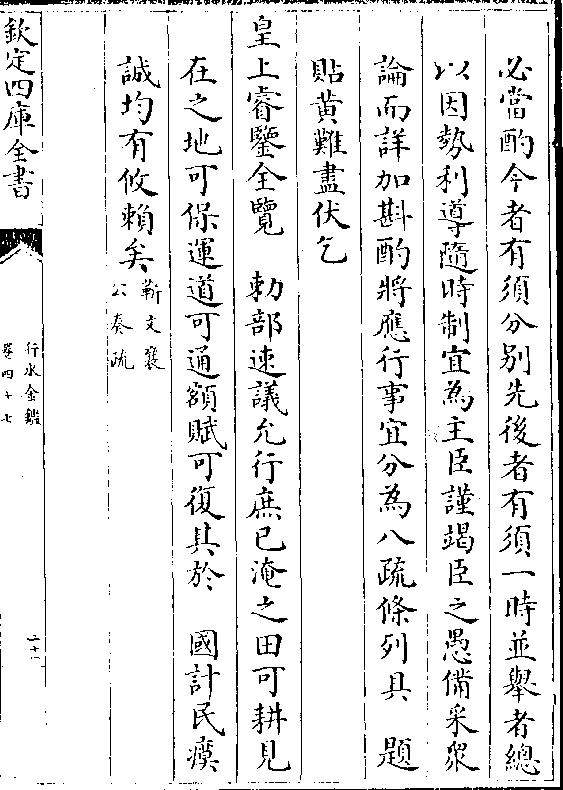 必當酌今者有須分别先後者有須一時並舉者總
以因勢利導隨時制宜為主臣謹竭臣之愚備采衆
論而詳加斟酌將應行事宜分為八疏條列具　題
貼黄難盡伏乞
皇上睿鑒全覽　勅部速議允行庶已淹之田可耕見
在之地可保運道可通額賦可復其於　國計民瘼
誠均有攸賴矣
靳文襄
公奏疏
欽定四庫全書
行水金鑑
卷四十七
二十一